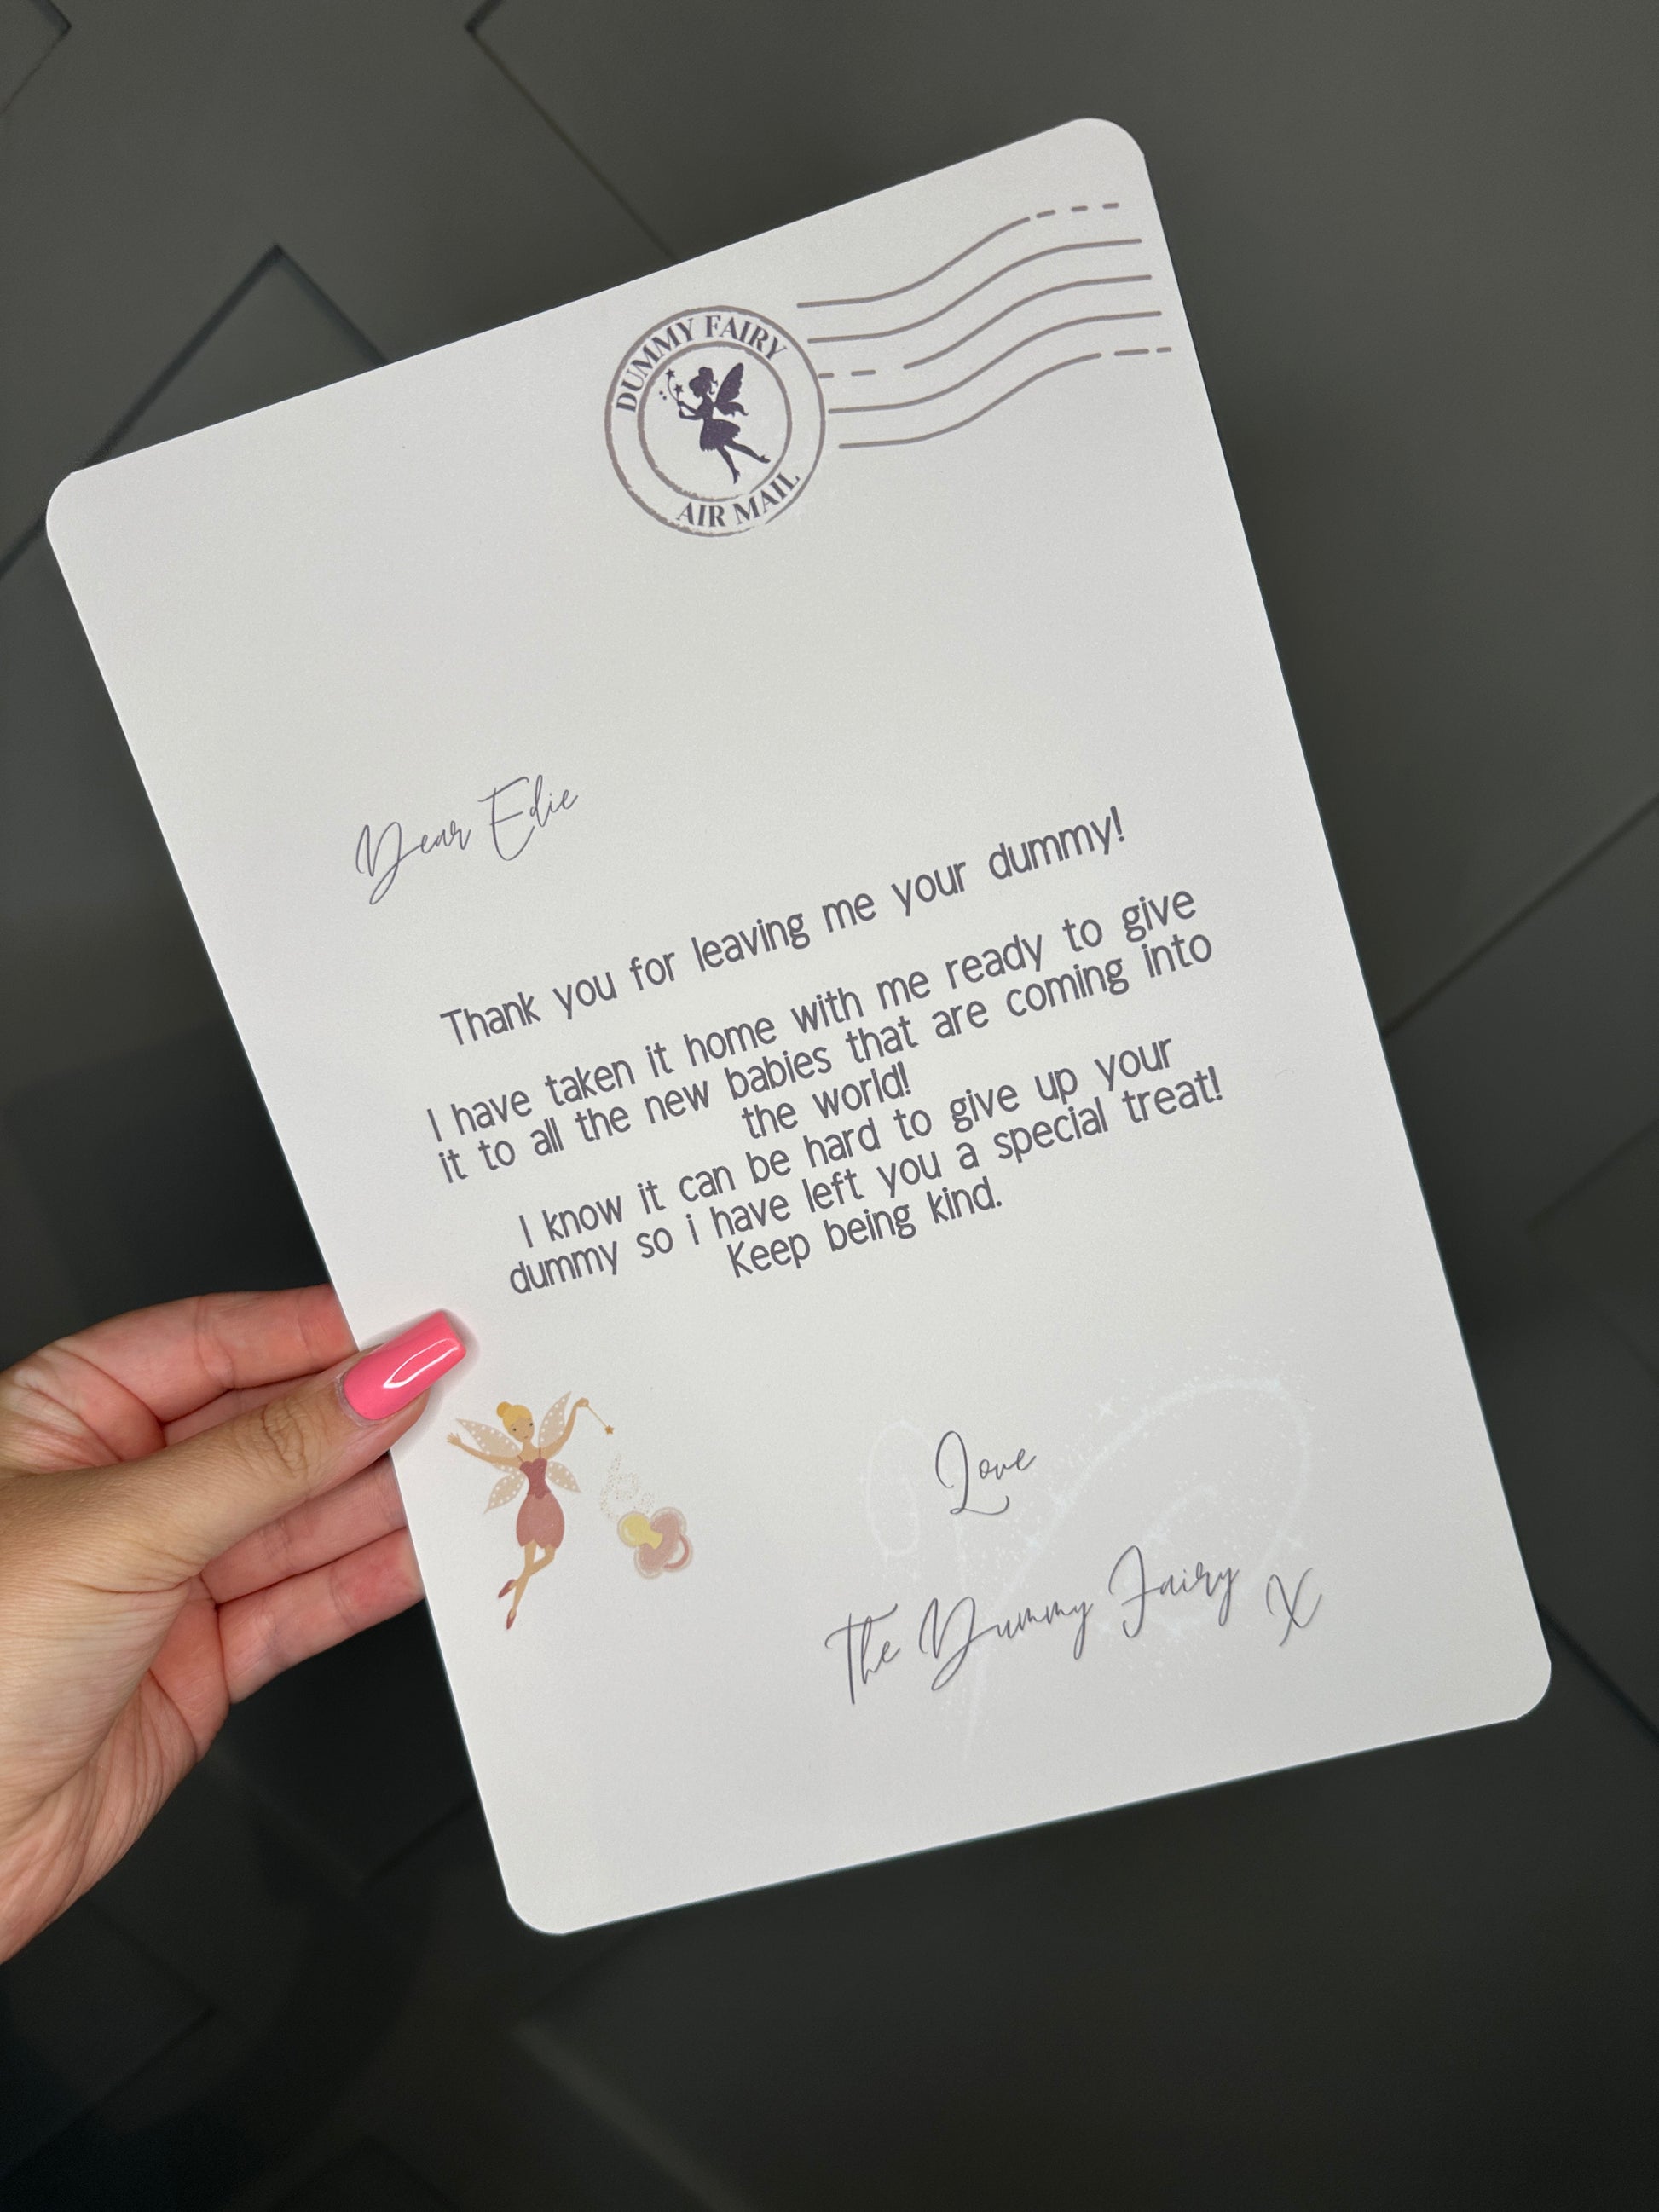 DUMMY FAIRY
AIR MAIL
Dear Edie
Thank you for leaving me your dummy!
I have taken it home with me ready to give
it to all the new babies that are coming into
the world!
I know it can be hard to give up your
dummy so i have left you a special treat!
Keep being kind.
Love
The Dummy Fairy X